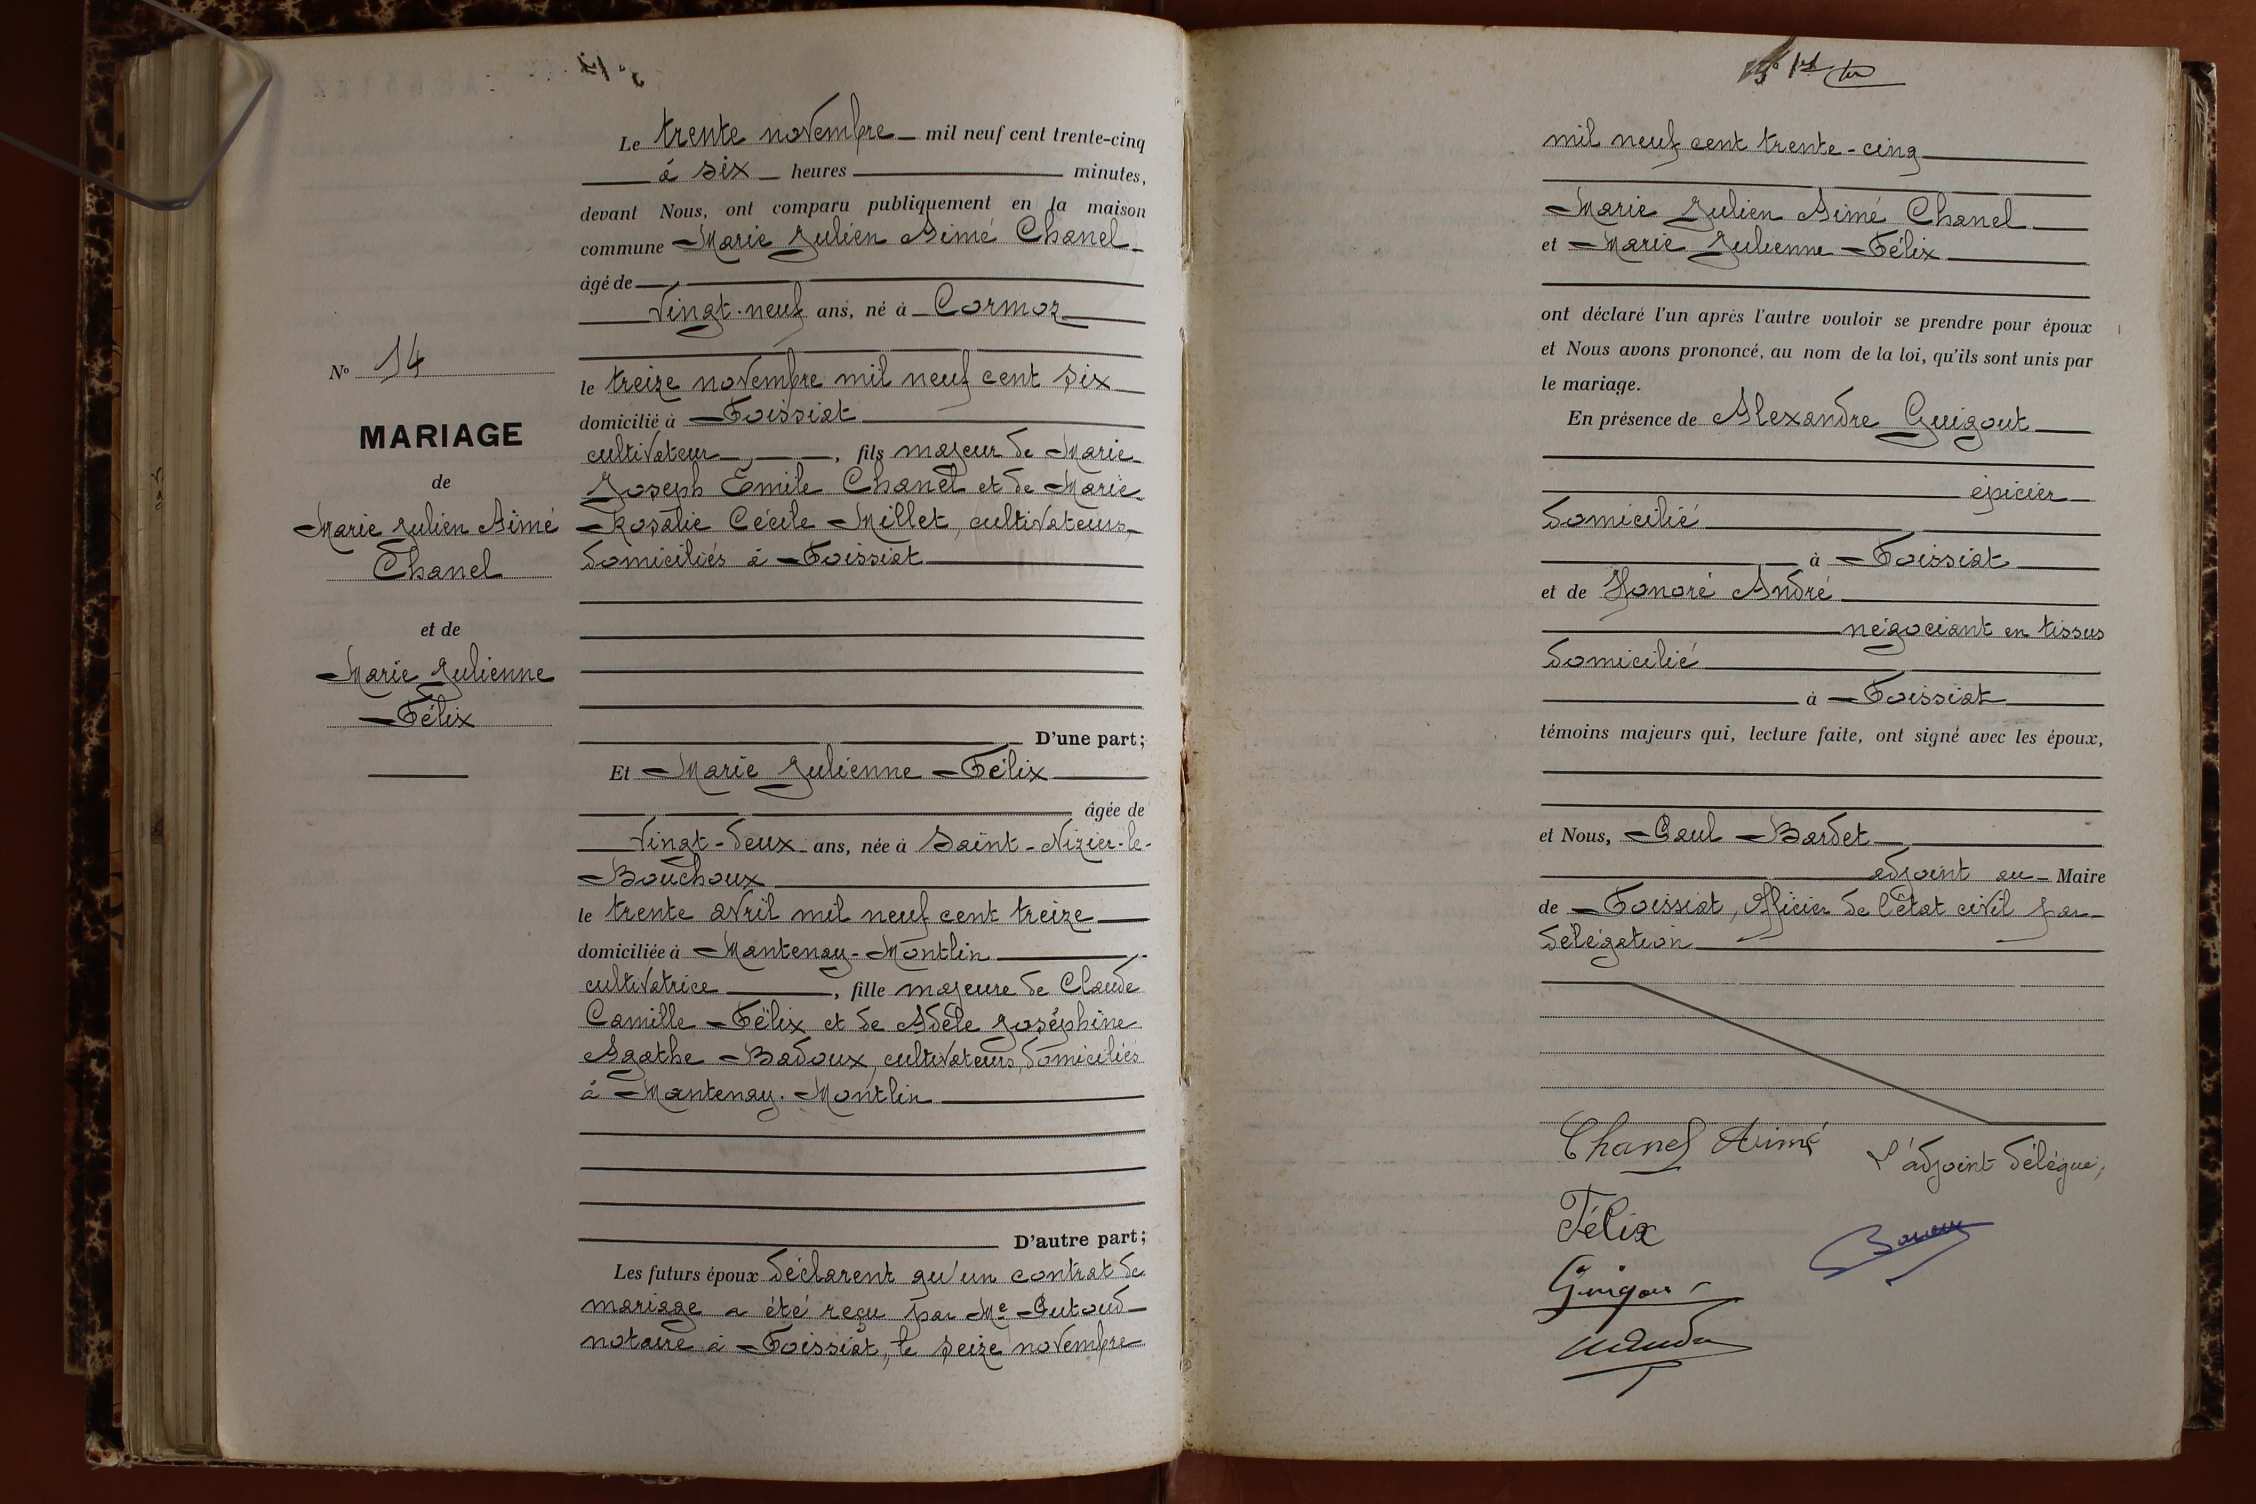 Le trente novembre mil neuf cent trente-cinq
à six heures minutes,
devant Nous, ont comparu publiquement en la maison
commune Marie Julien Aimé Chanel
âgé de
vingt-neuf ans, né à Cormoz
le treize novembre mil neuf cent six
domicilié à Foissiat
cultivateur, fils majeur de Marie
Joseph Emile Chanel et de Marie
Rosalie Cécile Millet, cultivateurs,
domiciliés à Foissiat
D'une part;
Et Marie Julienne Félix
âgée de
vingt-deux ans, née à Saint-Nizier-le-
Bouchoux
le trente avril mil neuf cent treize
domiciliée à Mantenay-Montlin
cultivatrice, fille majeure de Claude
Camille Félix et de Adèle Joséphine
Agathe Badoux, cultivateurs, domiciliés
à Mantenay-Montlin
D'autre part;
Les futurs époux déclarent qu'un contrat de
mariage a été reçu par Me Cutoud
notaire à Foissiat, le seize novembre
No 14
MARIAGE
de
Marie Julien Aimé
Chanel
et de
Marie Julienne
Félix
mil neuf cent trente-cinq
Marie Julien Aimé Chanel
et Marie Julienne Félix
ont déclaré l'un après l'autre vouloir se prendre pour époux
et Nous avons prononcé, au nom de la loi, qu'ils sont unis par
le mariage.
En présence de Alexandre Guigout
épicier
domicilié
à Foissiat
et de Honoré André
négociant en tissus
domicilié
à Foissiat
témoins majeurs qui, lecture faite, ont signé avec les époux,
et Nous, Paul Bardet
adjoint au Maire
de Foissiat, Officier de l'état civil par
délégation
Chanel Aimé
L'adjoint délégué,
Félix